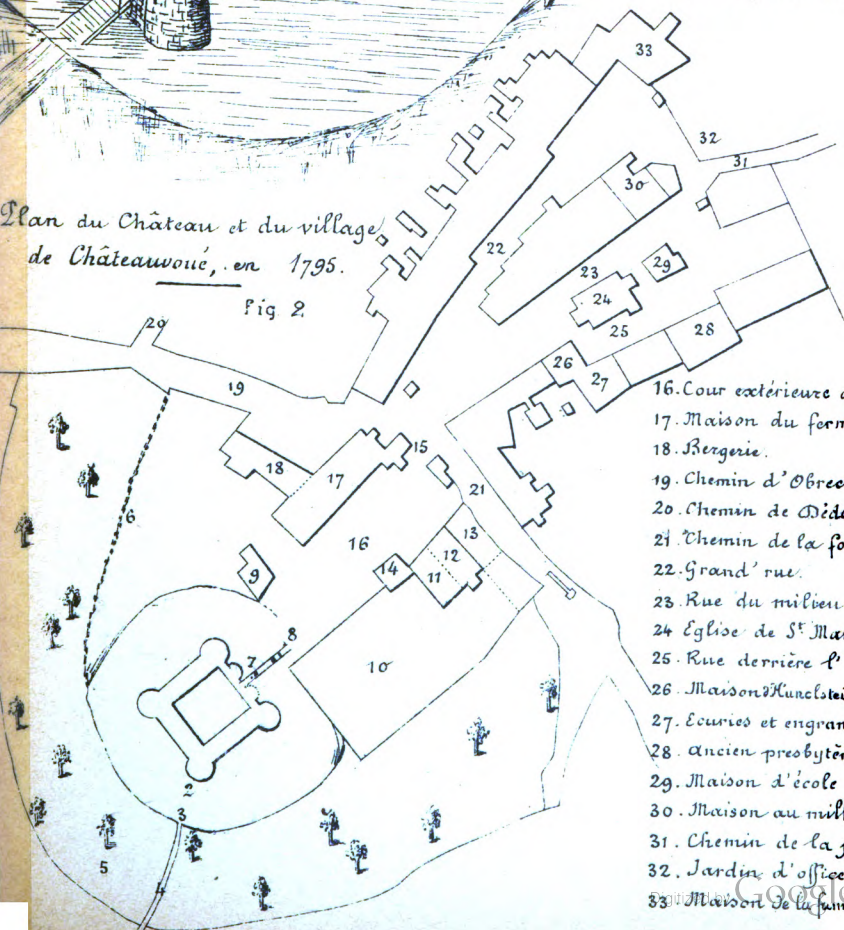 Plan du Château et du village
de Châteauvoué, en 1795.
Fig 2
33
32
31
30
22
23
29
24
25
28
20
26
27
19
15
17
18
21
6
16
13
12
14
11
9
8
7
10
2
3
5
4
16. Cour extérieure
17. Maison du
18. Bergerie.
19. Chemin d'
20. Chemin de
21. Chemin de la
22. Grand' rue.
23. Rue du milieu
24. Eglise de St
25. Rue derrière l'
26. Maison
27. Ecuries et
28. ancien
29. Maison d'école
30. Maison au
31. Chemin de la
32. Jardin d'
33. Maison de la
Digitized by Google